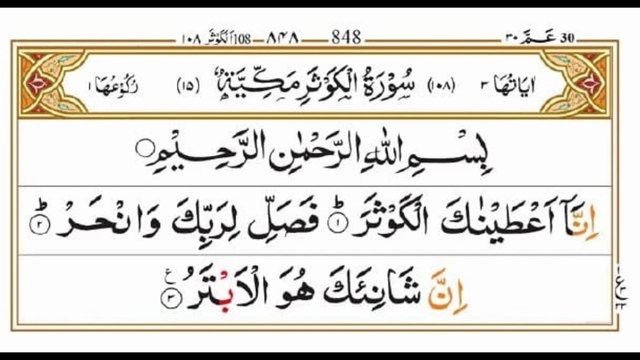 الكوثر ١٠٨ 108 ٨٤٨ 848 عم ٣٠ 30
اٰيَاتُهَا ٣ (١٠٨) سُوْرَةُ الْكَوْثَرِ مَكِّيَّةٌ (١٥) رُكُوْعُهَا ١
بِسْمِ اللّٰهِ الرَّحْمٰنِ الرَّحِيْمِ
اِنَّاۤ اَعْطَيْنٰكَ الْكَوْثَرَ ؕ﴿١﴾ فَصَلِّ لِرَبِّكَ وَانْحَرْ ؕ﴿٢﴾
اِنَّ شَانِئَكَ هُوَ الْاَبْتَرُ ﴿٣﴾ ع